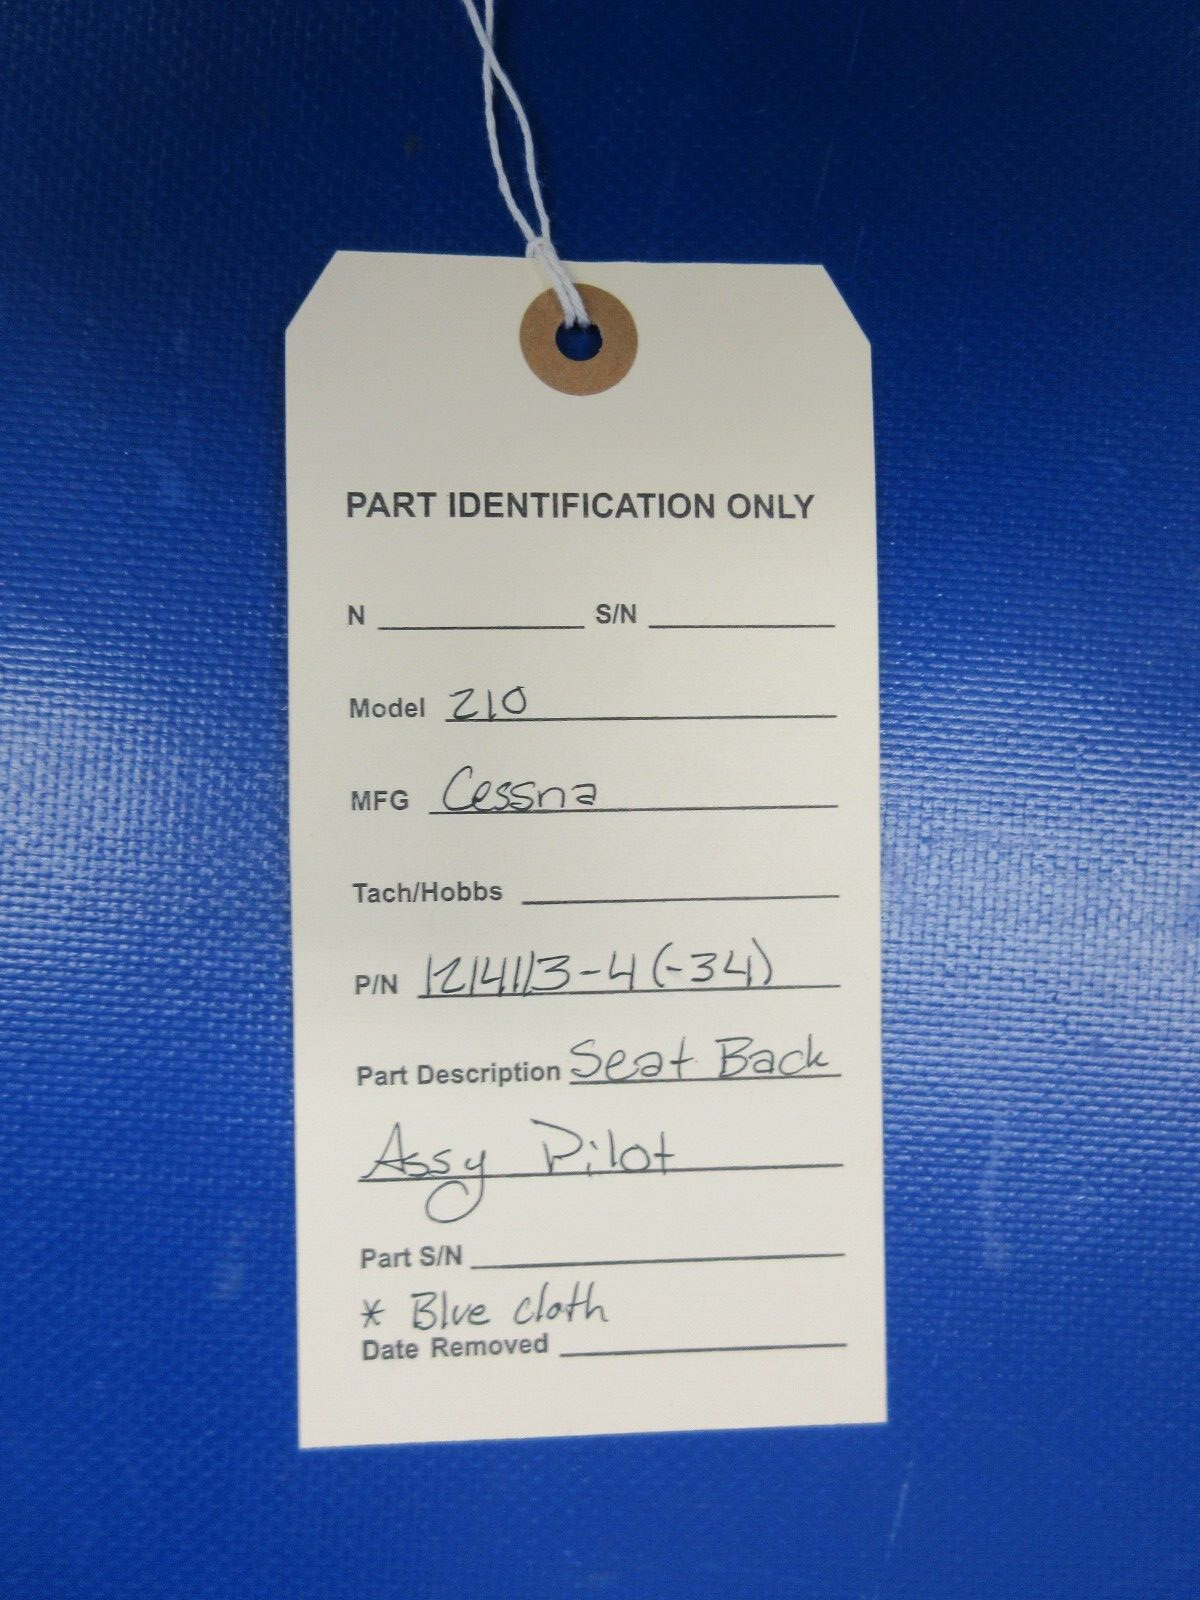 PART IDENTIFICATION ONLY
N S/N
Model 210
MFG Cessna
Tach/Hobbs
P/N 1214113-4 (-34)
Part Description Seat Back
Assy Pilot
Part S/N
* Blue cloth
Date Removed